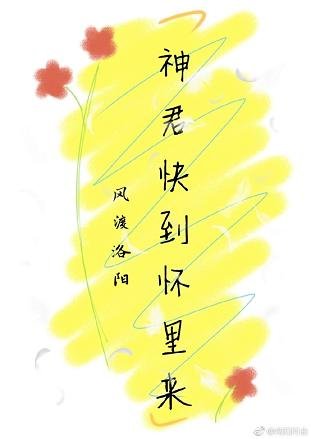 神君快到怀里来
风渡洛阳